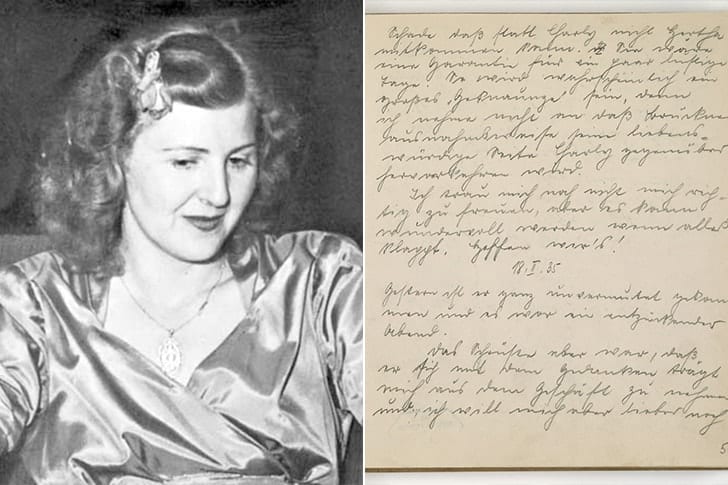 Schade daß statt Charly nicht Hertha
mitkommen kann. Sie wäre
eine Garantie für ein paar lustige
Tage. So wird wahrscheinlich ein
großes Geknaunze sein, denn
ich nehme nicht an daß Brückne
ausnahmsweise seine liebens-
würdige Seite Charly gegenüber
hervorkehren wird.
Ich trau mich noch nicht mich rich-
tig zu freuen, aber es kann
wundervoll werden wenn alles
klappt. Hoffen wir's!
18.II.35
Gestern ist er ganz unvermutet gekom
men und es war ein entzückender
Abend.
Das Schönste aber war, daß
er sich mit dem Gedanken trägt
mich aus dem Geschäft zu nehmen
und, ich will mich aber lieber noch
5